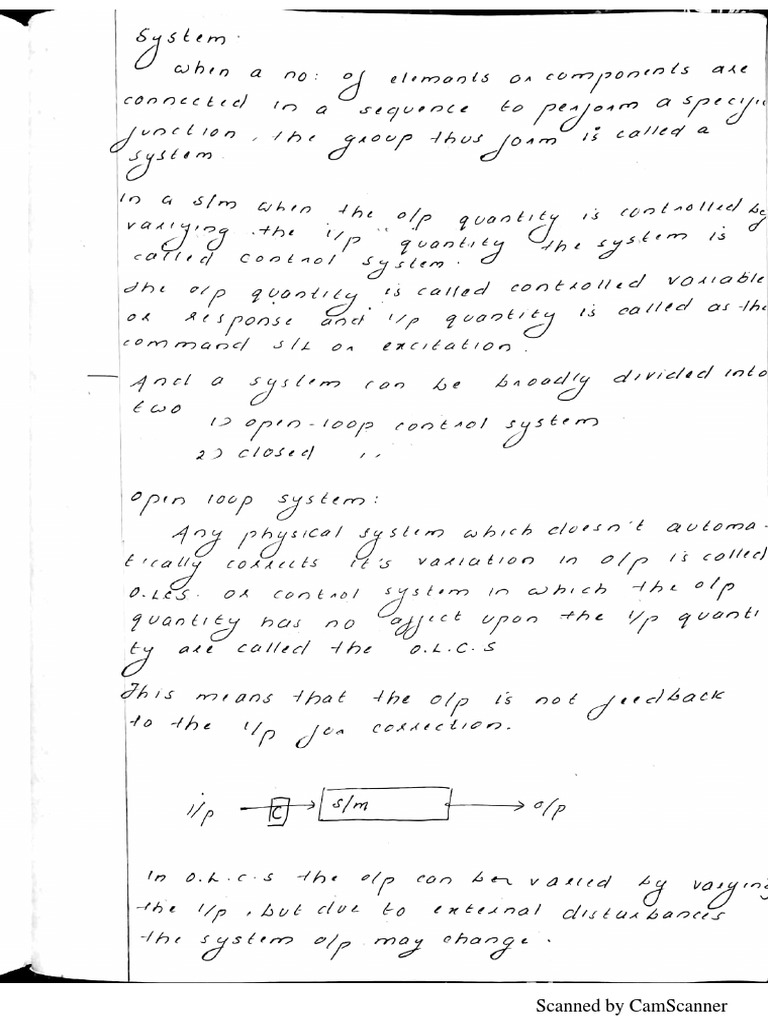 System.
when a no: of elements or components are
connected in a sequence to perform a specific
function, the group thus form is called a
system.
In a s/m when the o/p quantity is controlled by
varying the i/p quantity the system is
called control system.
The o/p quantity is called controlled variable
or response and i/p quantity is called as the
command s/l or excitation.
And a system can be broadly divided into
two
1) open-loop control system
2) closed ,,
open loop system:
Any physical system which doesn't automa-
tically corrects it's variation in o/p is called
O.L.C.S. or control system in which the o/p
quantity has no affect upon the i/p quanti
ty are called the O.L.C.S
This means that the o/p is not feedback
to the i/p for correction.
i/p C s/m o/p
In O.L.C.S the o/p can be varied by varying
the i/p, but due to external disturbances
the system o/p may change.
Scanned by CamScanner